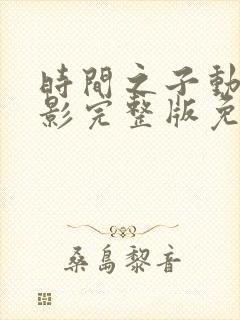 時間之子動
影完整版免
桑島黎音